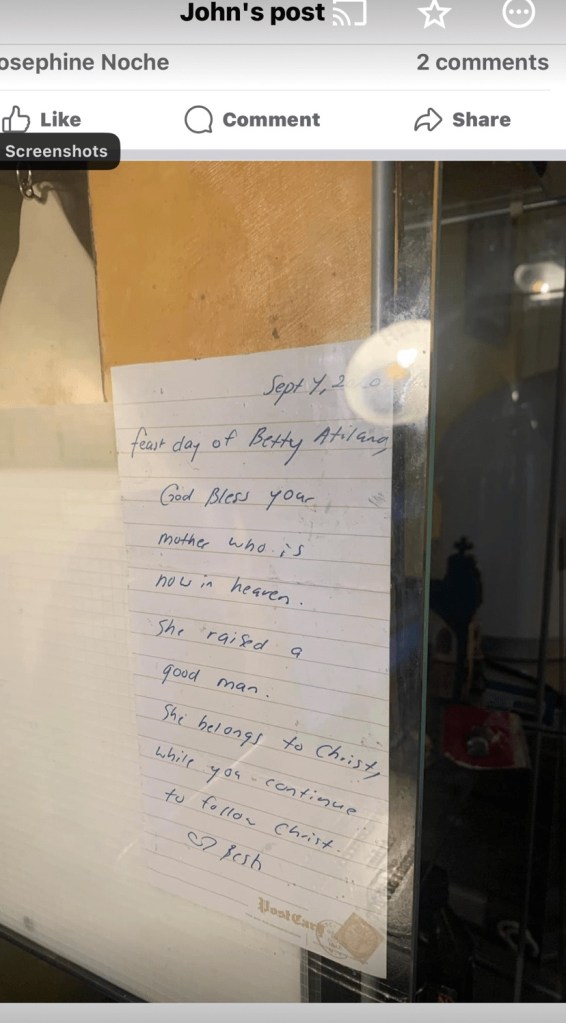 John's post
osephine Noche
2 comments
Like
Comment
Share
Screenshots
Sept 4, 2
feast day of Betty Atilano
God Bless your
mother who is
now in heaven.
She raised a
good man.
She belongs to Christ,
while you continue
to follow Christ.
♡ Besh
PostCard